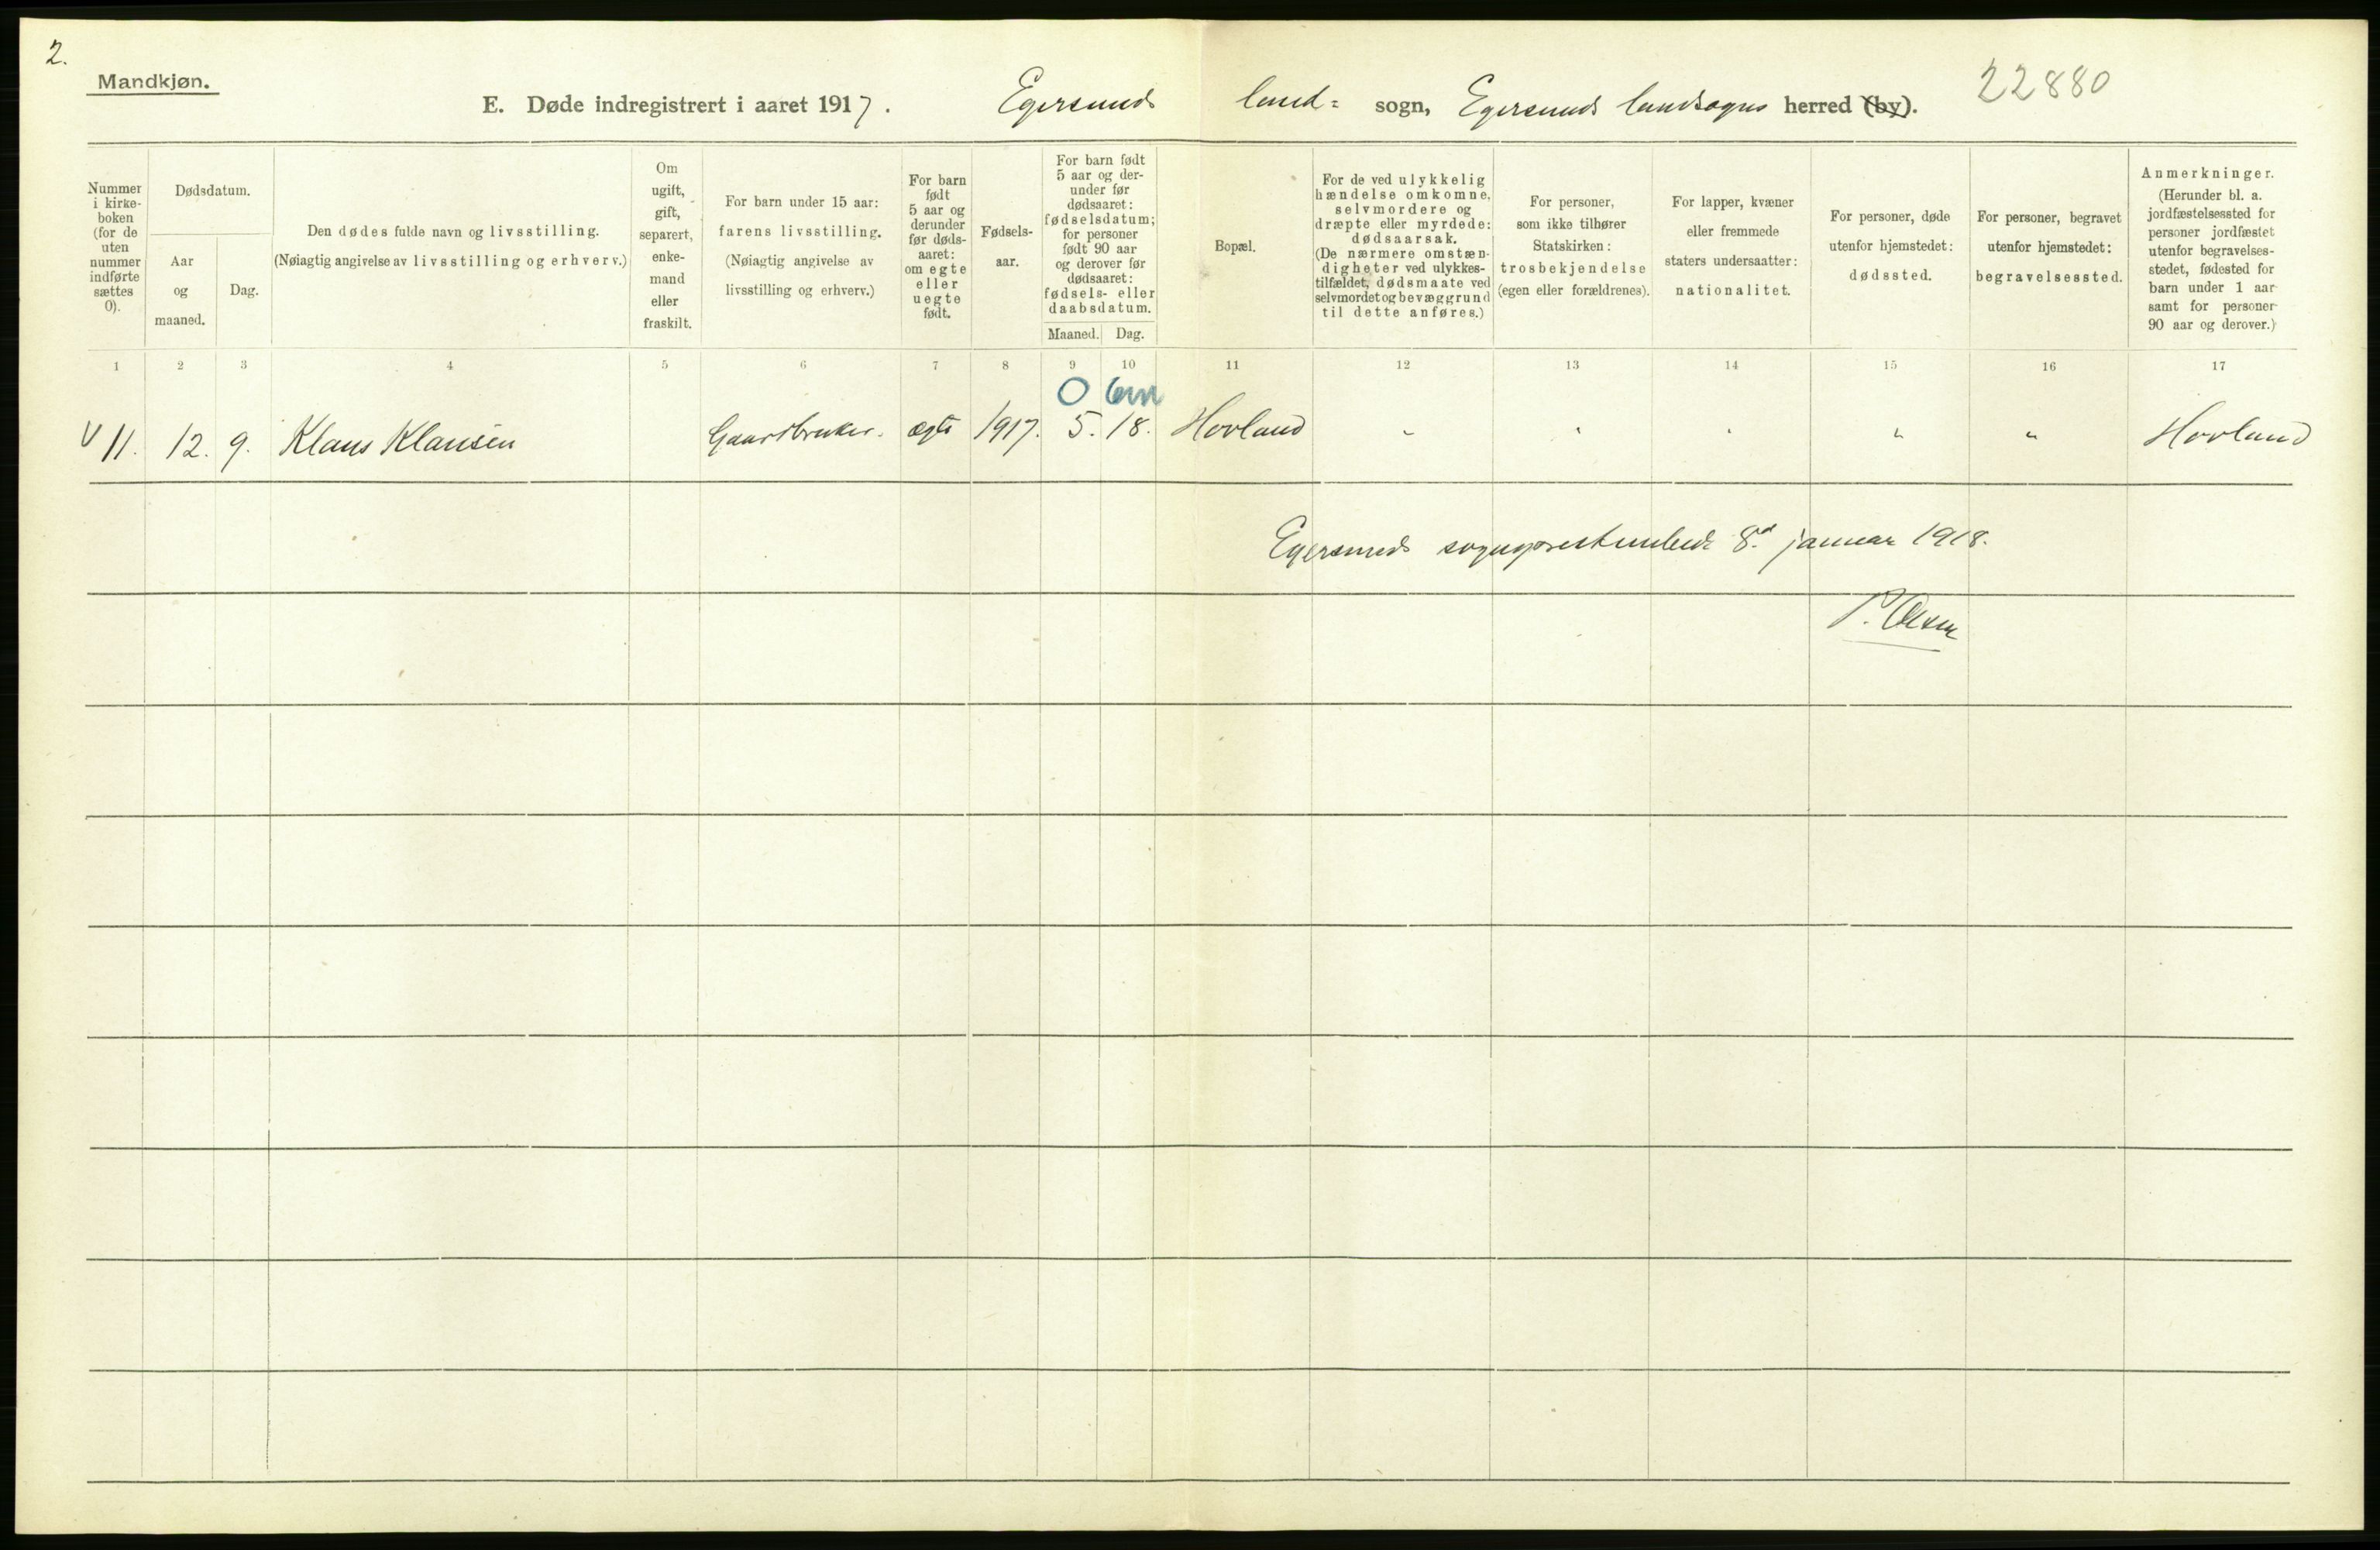 2.
Mandkjøn.
E. Døde indregistrert i aaret 1917. Egersunds land= sogn, Egersunds landsogns herred (by).
22880
Nummer i kirke-boken (for de uten nummer indførte sættes 0).
Dødsdatum.
Aar og maaned.
Dag.
Den dødes fulde navn og livsstilling.
(Nøiagtig angivelse av livsstilling og erhverv.)
Om ugift, gift, separert, enke-mand eller fraskilt.
For barn under 15 aar: farens livsstilling.
(Nøiagtig angivelse av livsstilling og erhverv.)
For barn født 5 aar og derunder før døds-aaret: om egte eller uegte født.
Fødsels-aar.
For barn født 5 aar og der-under før dødsaaret: fødselsdatum; for personer født 90 aar og derover før dødsaaret: fødsels- eller daabsdatum.
Maaned.
Dag.
Bopæl.
For de ved ulykkelig hændelse omkomne, selvmordere og dræpte eller myrdede: dødsaarsak.
(De nærmere omstæn-digheter ved ulykkes-tilfældet, dødsmaate ved selvmordet og bevæggrund til dette anføres.)
For personer, som ikke tilhører Statskirken: trosbekjendelse (egen eller forældrenes).
For lapper, kvæner eller fremmede staters undersaatter: nationalitet.
For personer, døde utenfor hjemstedet: dødssted.
For personer, begravet utenfor hjemstedet: begravelsessted.
Anmerkninger.
(Herunder bl. a. jordfæstelsessted for personer jordfæstet utenfor begravelses-stedet, fødested for barn under 1 aar samt for personer 90 aar og derover.)
1 2 3 4 5 6 7 8 9 10 11 12 13 14 15 16 17
0 6m
V 11. 12. 9. Klaus Klausen Gaardbruker. ægte 1917. 5. 18. Hovland - " " " " Hovland
Egersunds sogneprestembede 8d januar 1918.
P. Olsen